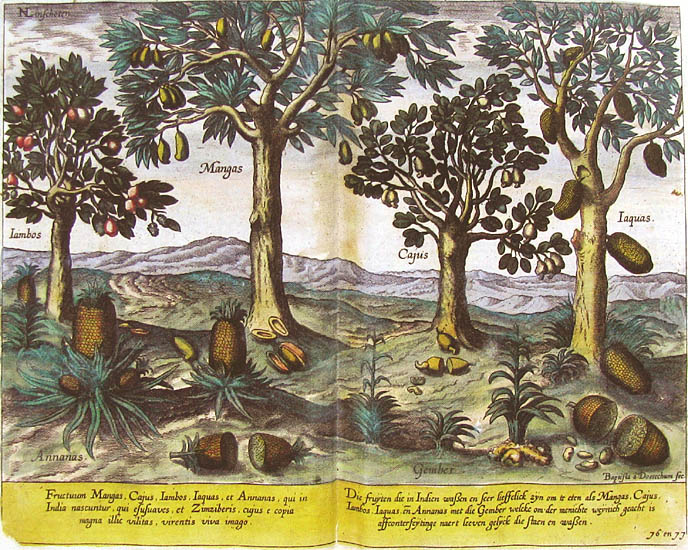 Iambos
Mangas
Cajus
Iaquas.
Annanas.
Gember
Baptista à Doetechum fec.
Fructuum Mangas, Cajus, Iambos, Iaquas, et Annanas, qui in
India nascuntur, qui et suaves, et Zinziberis, cujus e copia
magna illic vilitas, virentis viva imago.
Die fruijten die in Indien waßen en seer lieffelick zijn om te eten als Mangas, Cajus,
Iambos, Iaquas, en Annanas met die Gember welcke om der menichte weijnich geacht is
affconterfeijtinge naert leeven gelijck die staen en waßen.
76 en 77